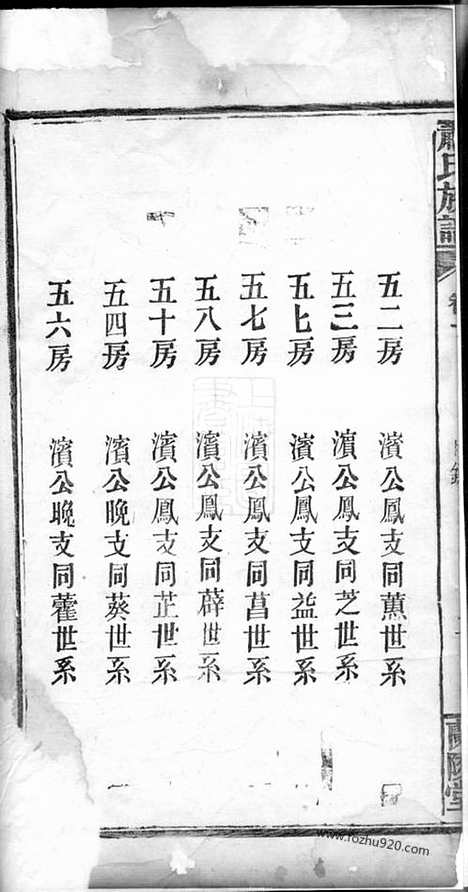 蕭氏族譜
卷一
蘭陵堂
五二房 濱公鳳支同薰世系
五三房 濱公鳳支同芝世系
五七房 濱公鳳支同益世系
五七房 濱公鳳支同菖世系
五八房 濱公鳳支同薜世系
五十房 濱公鳳支同芷世系
五四房 濱公晚支同葵世系
五六房 濱公晚支同藿世系
www.fozhu920.com